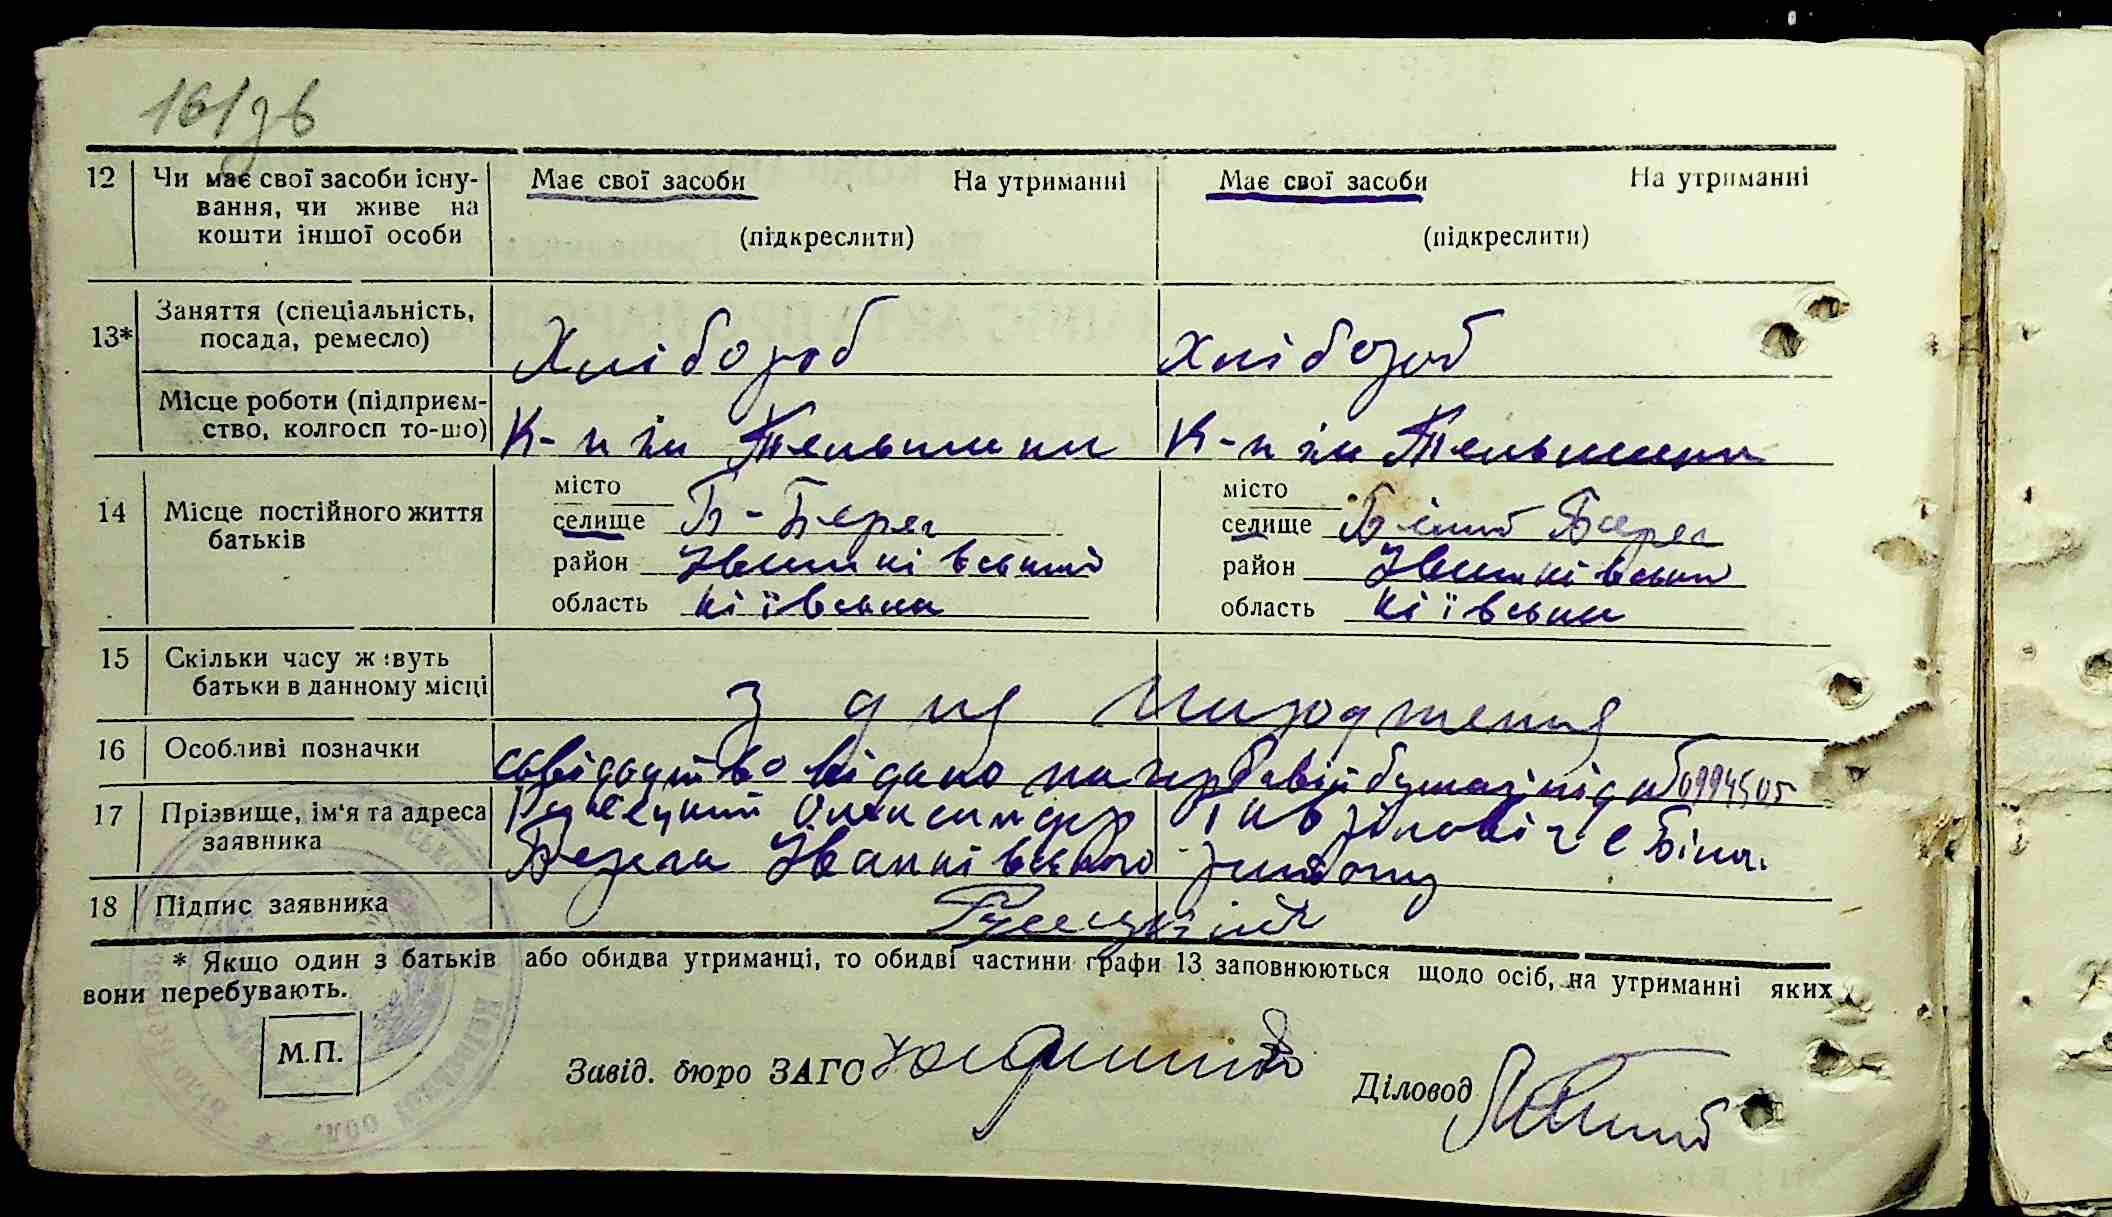 161зв
12 Чи має свої засоби існу- Має свої засоби На утриманні Має свої засоби На утриманні
вання, чи живе на
кошти іншої особи (підкреслити) (підкреслити)
13* Заняття (спеціальність,
посада, ремесло) Хлібороб Хлібороб
Місце роботи (підприєм-
ство, колгосп то-що) К-п ім Тельмана К-п ім Тельмана
місто місто
14 Місце постійного життя селище Б-Берег селище Білий Берег
батьків район Іванківський район Іванківський
область Кіївська область Кіївська
15 Скільки часу живуть
батьки в данному місці З дня народження
16 Особливі позначки свідоцтво відано на гербавій бумазі під №
17 Прізвище, ім'я та адреса Олександр с Біла.
заявника Берега Іванківського району
18 Підпис заявника
* Якщо один з батьків або обидва утриманці, то обидві частини графи 13 заповнюються щодо осіб, на утриманні яких
вони перебувають.
М.П.
Завід. бюро ЗАГС Діловод